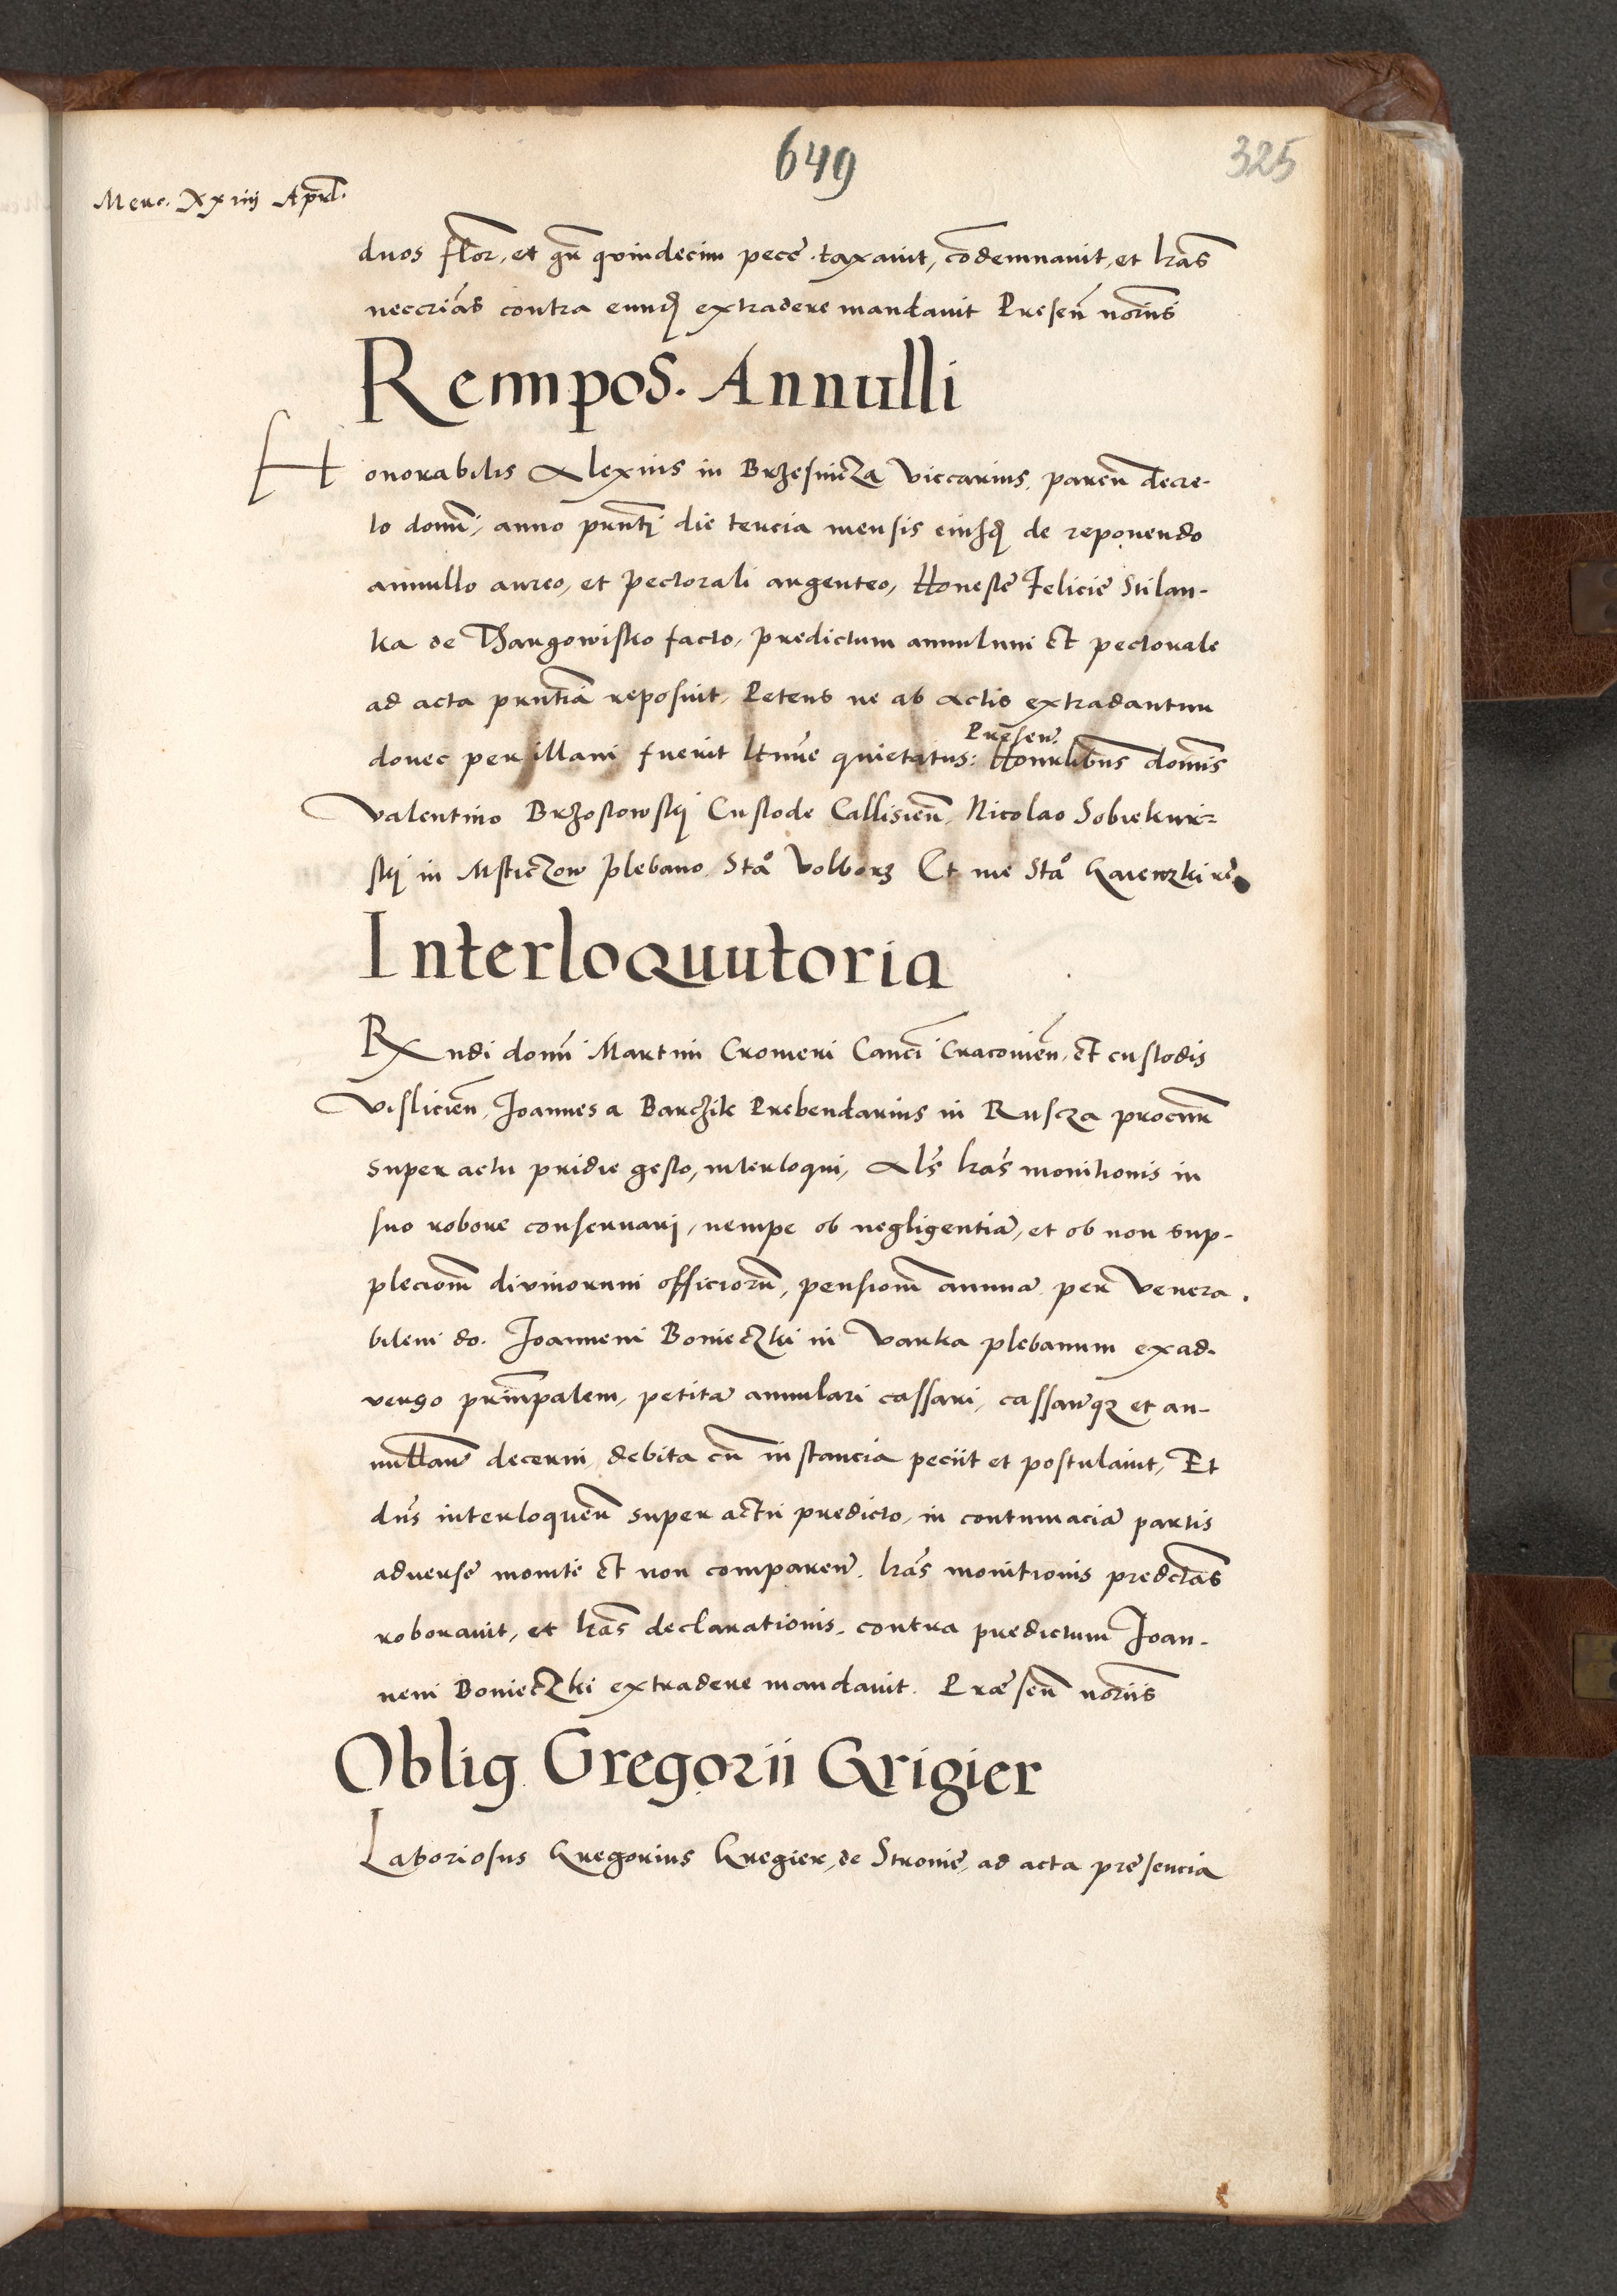 649
325
Merc. XXiiij April.
duos flor, et gr̄ quindecim pecē. taxauit, cōdemnauit, et lrās
neccriās contra eundꝫ extradere mandauit Presen̄ noriis
Reimpos. Annulli
Honorabilis Alexius in Brzesnicza Viccarius, paren̄ decre-
to domī, anno pn̄ti die tercia mensis eiusdꝫ de reponendo
annullo aureo, et pectorali argenteo, Honestę Felicię Stilan-
ka de Thargowisko facto, predictum annulum et pectorale
ad acta pn̄tia reposuit, Petens ne ab actis extradantur
Presen.
donec per illam fuerit lt̄ime quietatus: Honrlibus dominis
Valentino Brzostowskj Custode Callisien̄, Nicolao Sobiekur-
skj in Msticzow plebano Staº Volborz Et me Staº
Interloquutoria
RXndi domī Martini Cromeri Canci Cracovien̄, et custodis
Vislicien̄, Joannes a Barczik Prebendarius in Ruscza procur̄
super actu pridie gesto, interloqui, Als̄ lrās monitionis in
suo robore conseruarj, nempe ob negligentiā, et ob non sup-
plecionē divinorum officiorū, pensionē annuā per Venera-
bilem do. Joannem Bonieczki in Varka plebanum exad-
verso prinīpalem, petitā annulari cassari, cassanꝗꝫ et an-
nullan̄ decerni, debita cū instancia peciit et postulauit, Et
dn̄s interloquen̄ super actu predicto, in contumaciā partis
aduersę monitę et non comparen̄. lrās monitionis predctās
roborauit, et lrās declarationis contra predictum Joan-
nem Bonieczki extradere mandauit. Præsen̄ noriis
Oblig Gregorii Grigier
Laboriosus Gregorius Gregier, de Stronie, ad acta presencia